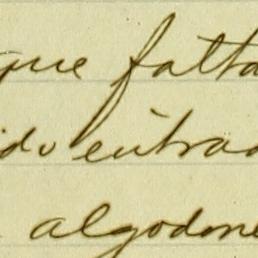 que falta
ido entrad
algodone